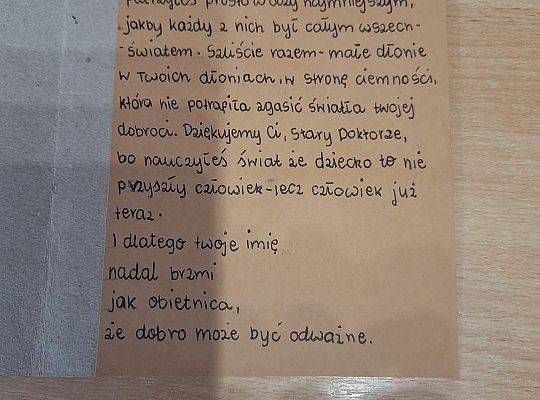 Patrzyłeś prosto w oczy najmniejszym,
jakby każdy z nich był całym wszech-
-światem. Szliście razem - małe dłonie
w Twoich dłoniach, w stronę ciemności,
która nie potrafiła zgasić światła twojej
dobroci. Dziękujemy Ci, Stary Doktorze,
bo nauczyłeś świat że dziecko to nie
przyszły człowiek - lecz człowiek już
teraz.
I dlatego twoje imię
nadal brzmi
jak obietnica,
że dobro może być odważne.